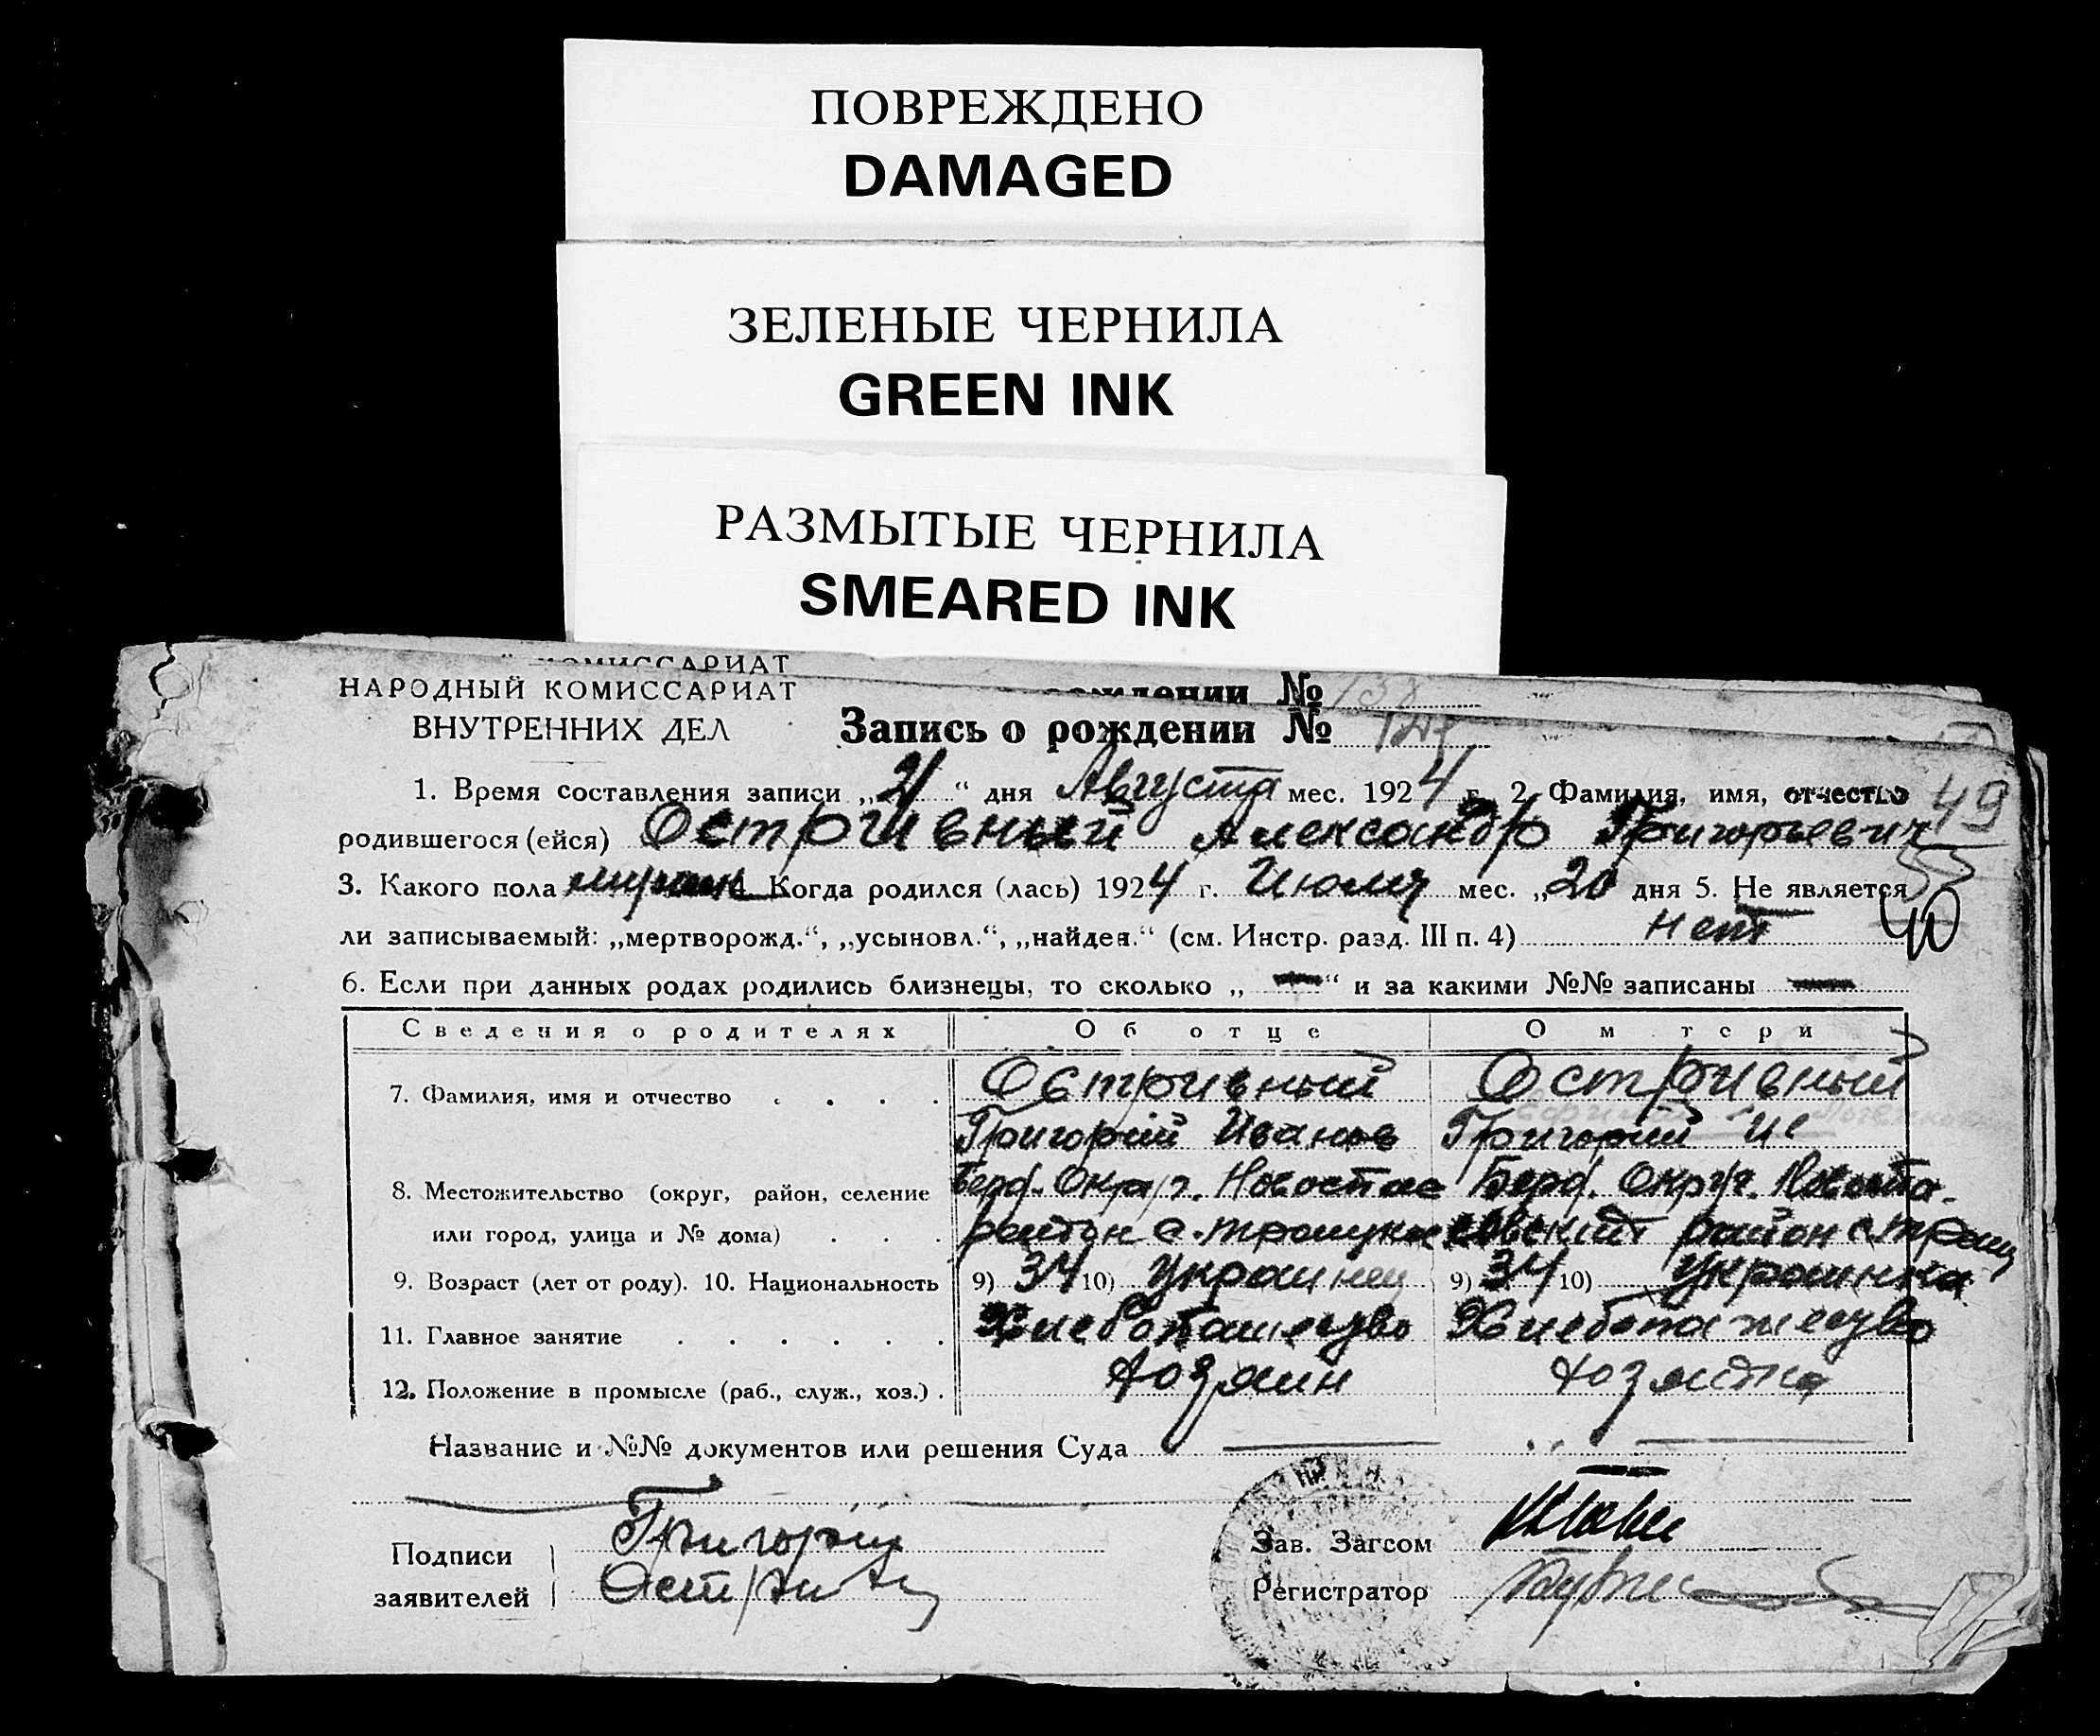 ПОВРЕЖДЕНО
DAMAGED
ЗЕЛЕНЫЕ ЧЕРНИЛА
GREEN INK
РАЗМЫТЫЕ ЧЕРНИЛА
SMEARED INK
КОМИССАРИАТ
№ 138
НАРОДНЫЙ КОМИССАРИАТ
ВНУТРЕННИХ ДЕЛ
Запись о рождении №
1. Время составления записи „21“ дня Августа мес. 1924 г. 2. Фамилия, имя, отчество 49
родившегося (ейся) Остривный Александр Григорьевич
3. Какого пола мужск 4. Когда родился (лась) 1924 г. Июля мес. „20 дня 5. Не является
40
ли записываемый: „мертворожд.“, „усыновл.“, „найден.“ (см. Инстр. разд. III п. 4) нет
6. Если при данных родах родились близнецы, то сколько „ — “ и за какими №№ записаны —
Сведения о родителях Об отце О м тери
7. Фамилия, имя и отчество . . . . Остривный Остривный
Григорий Иванов Григорий Ив
8. Местожительство (округ, район, селение Берд. Округ. Новоспас Берд. Округ.
или город, улица и № дома) . . . район с. район с
9. Возраст (лет от роду). 10. Национальность 9) 34 10) Украинец 9) 34 10) Украинка
11. Главное занятие . . . . . Хлебопашество
12. Положение в промысле (раб., служ., хоз.) . хозяин хозяйка
Название и №№ документов или решения Суда
Подписи Григорий
заявителей
Зав. Загсом
Регистратор